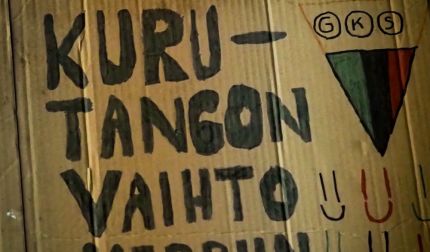 KURU-
TANGON
VAIHTO
GKS